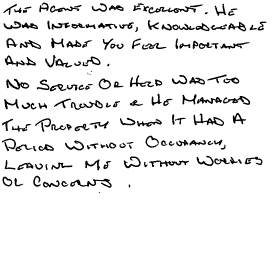 THE AGENT WAS EXCELLENT. HE
WAS INFORMATIVE, KNOWLEDGEABLE
AND MADE YOU FEEL IMPORTANT
AND VALUED.
NO SERVICE OR HELP WAS TOO
MUCH TROUBLE & HE MANAGED
THE PROPERTY WHEN IT HAD A
PERIOD WITHOUT OCCUPANCY,
LEAVING ME WITHOUT WORRIES
OR CONCERNS.